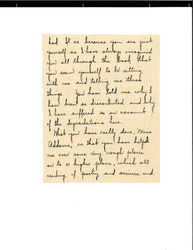 had. It is because you are just
yourself as I have always imagined
you all through the book that
you seem yourself to be sitting
with me and telling me these
things. You have told me why I
have been so discontented and why
I have suffered so on account of
of the degradations here.
What you have really done, Miss
Addams, is that you have helped
me over some very rough places
on to a higher plane, which all
reading of poetry and science and